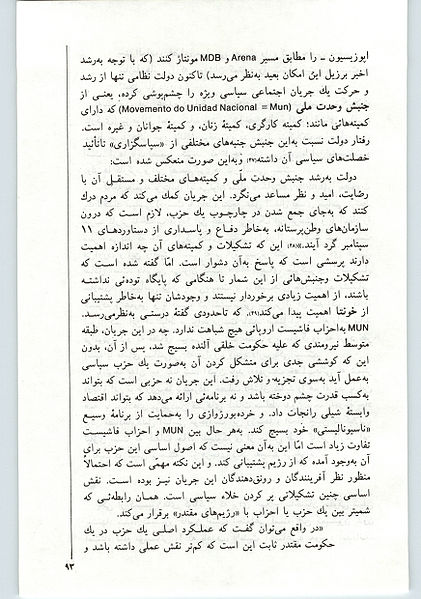 اپوزیسیون ـ را مطابق مسیر Arena و MDB مونتاژ کنند (که با توجه به‌رشد
اخیر برزیل این امکان بعید به‌نظر می‌رسد) تاکنون دولت نظامی تنها از رشد
و حرکت یك جریان اجتماعی سیاسی ویژه را چشم‌پوشی کرده، یعنی از
جنبش وحدت ملی (Movemento do Unidad Nacional = Mun) که دارای
کمیته‌هائی مانند؛ کمیته کارگری، کمیتهٔ زنان، و کمیتهٔ جوانان و غیره است.
رفتار دولت نسبت به‌این جنبش جنبه‌های مختلفی از «سپاسگزاری» تاتأئید
خصلت‌های سیاسی آن داشته(۲۷) و‌به‌این صورت منعکس شده است:
دولت به‌رشد جنبش وحدت ملّی و کمیته‌های مختلف و مستقل آن با
رضایت، امید و نظر مساعد می‌نگرد. این جریان کمك می‌کند که مردم درك
کنند که به‌جای جمع شدن در چارچوب یك حزب، لازم است که درون
سازمان‌های وطن‌پرستانه، به‌خاطر دفاع و پاسداری از دستاوردهای ۱۱
سپتامبر گرد آیند.»(۲۸) این که تشکیلات و کمیته‌های آن چه اندازه اهمیت
دارند پرسشی است که پاسخ به‌آن دشوار است. امّا گفته شده است که
تشکیلات وجنبش‌هائی از این شمار تا هنگامی که پایگاه توده‌ئی نداشته
باشند، از اهمیت زیادی برخوردار نیستند و وجودشان تنها به‌خاطر پشتیبانی
از خونتا اهمیت پیدا می‌کند(۲۹)، که تاحدودی گفتهٔ درستی به‌نظر‌می‌رسد.
MUN به‌احزاب فاشیست اروپائی هیچ شباهت ندارد. چه در این جریان، طبقه
متوسط نیرومندی که علیه حکومت خلقی آلنده بسیج شد، پس از آن، بدون
این که کوششی جدی برای متشکل کردن آن به‌صورت یك حزب سیاسی
به‌عمل آید به‌سوی تجزیه و تلاش رفت. این جریان نه حزبی است که بتواند
به‌کسب قدرت چشم دوخته باشد و نه برنامه‌ئی ارائه می‌دهد که بتواند اقتصاد
وابستهٔ شیلی رانجات داد. و خرده‌بورژوازی را به‌حمایت از برنامهٔ وسیع
«ناسیونالیستی» خود بسیج کند. به‌هر حال بین MUN و احزاب فاشیست
تفاوت زیاد است امّا این به‌آن معنی نیست که اصول اساسی این حزب برای
آن به‌وجود آمده که از رژیم پشتیبانی کند. و این نکته مهمّی است که احتمالاً
منظور نظر آفرینندگان و رونق‌دهندگان این جریان نیز بوده است. نقش
اساسی چنین تشکیلاتی پر کردن خلاء سیاسی است. همان رابطه‌ئی که
شمیتر بین یك حزب یا احزاب با «رژیم‌های مقتدر» برقرار می‌کند.
«در واقع می‌توان گفت که عملکرد اصلی یك حزب در یك
حکومت مقتدر ثابت این است که کم‌تر نقش عملی داشته باشد و
۹۳